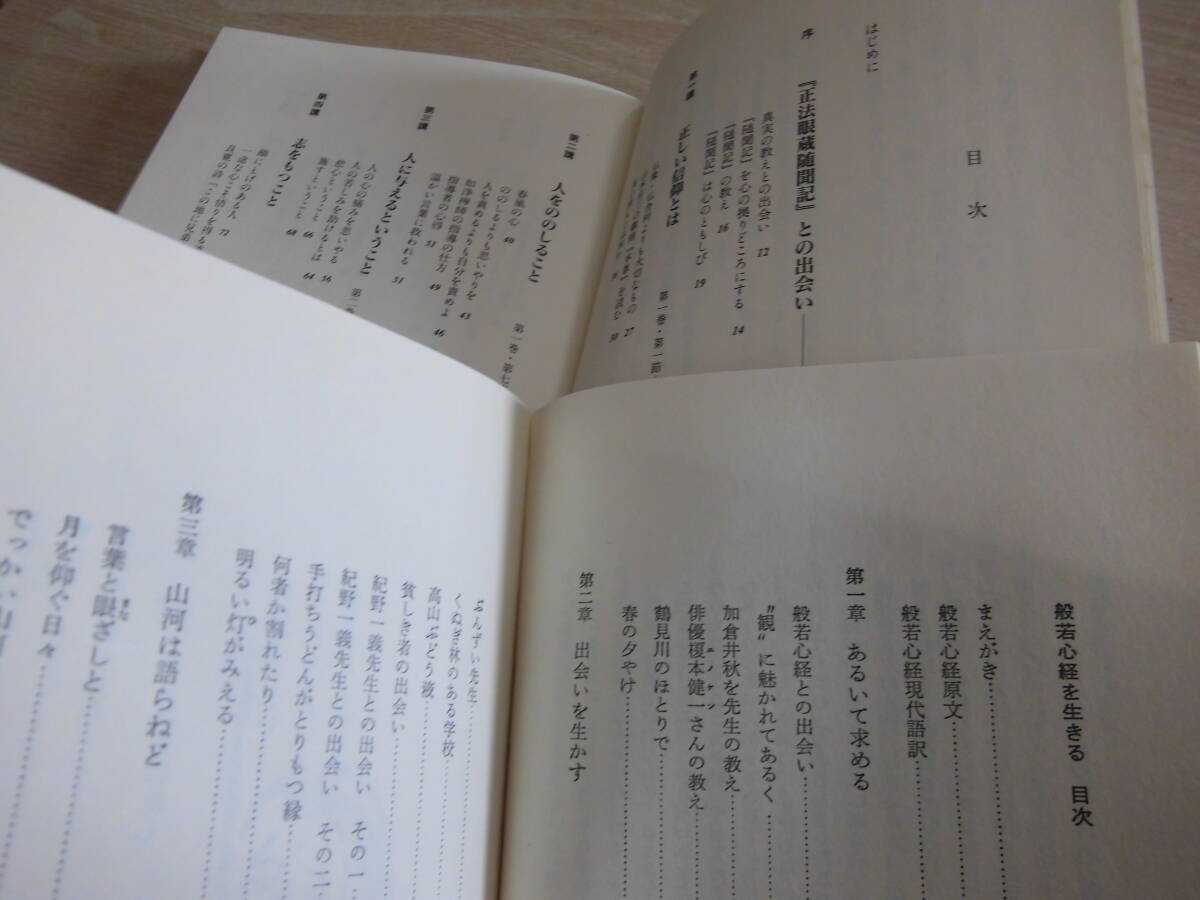 目次
はじめに
序 『正法眼蔵随聞記』との出会い
真実の教えとの出会い 12
『随聞記』を心の拠りどころにする 14
『随聞記』の教え 16
『随聞記』は心のともしび 19
第一講 正しい信仰とは
第一巻・第一節
よりも大切なもの 27
を読む 30
第二講 人をののしること
第一巻・第七
春風の心 40
ののしるよりも思いやりを 43
人を責めるよりも自分を責めよ 46
如浄禅師の指導の仕方 49
指導者の心得 51
温かい言葉に救われる 51
第三講 人に与えるということ
第二巻
人の心の痛みを思いやる 56
人の苦しみを助けるとは 64
悲心ということ 66
施すということ 68
第四講 志をもつこと
顔にとげのある人 72
一途な心こそ悟りを得るもの
良寛の詩「この地に兄弟
般若心経を生きる 目次
まえがき
般若心経原文
般若心経現代語訳
第一章 あるいて求める
般若心経との出会い
“観”に魅かれてあるく
加倉井秋を先生の教え
俳優榎本健一さんの教え
エノケン
鶴見川のほとりで
春の夕やけ
第二章 出会いを生かす
ぶんずい先生
くぬぎ林のある学校
高山ぶどう液
貧しき者の出会い
紀野一義先生との出会い その一
紀野一義先生との出会い その二
手打ちうどんがとりもつ縁
何者か割れたり
明るい灯がみえる
第三章 山河は語らねど
言葉と眼ざしと
まな
月を仰ぐ日々
でっかい山河